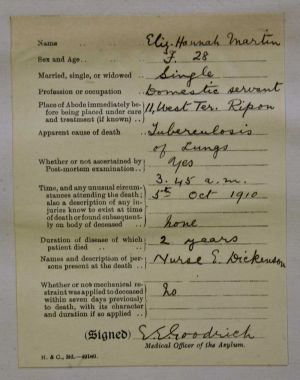 Name .. .. Eliz. Hannah Martin
Sex and Age .. .. F. 28
Married, single, or widowed .. Single
Profession or occupation Domestic servant
Place of Abode immediately be-
fore being placed under care
and treatment (if known) .. 11, West Ter. Ripon
Apparent cause of death .. Tuberculosis
of Lungs
Whether or not ascertained by
Post-mortem examination .. Yes
3.45 a.m.
Time, and any unusual circum- 5th Oct 1910
stances attending the death;
also a description of any in-
juries know to exist at time
of death or found subsequent-
ly on body of deceased .. none
Duration of disease of which
patient died .. .. 2 years
Names and description of per-
sons present at the death .. Nurse E. Dickenson
Whether or not mechanical re-
straint was applied to deceased
within seven days previously
to death, with its character
and duration if so applied .. no
(Signed) Goodrich
Medical Officer of the Asylum.
H. & C., Ltd.